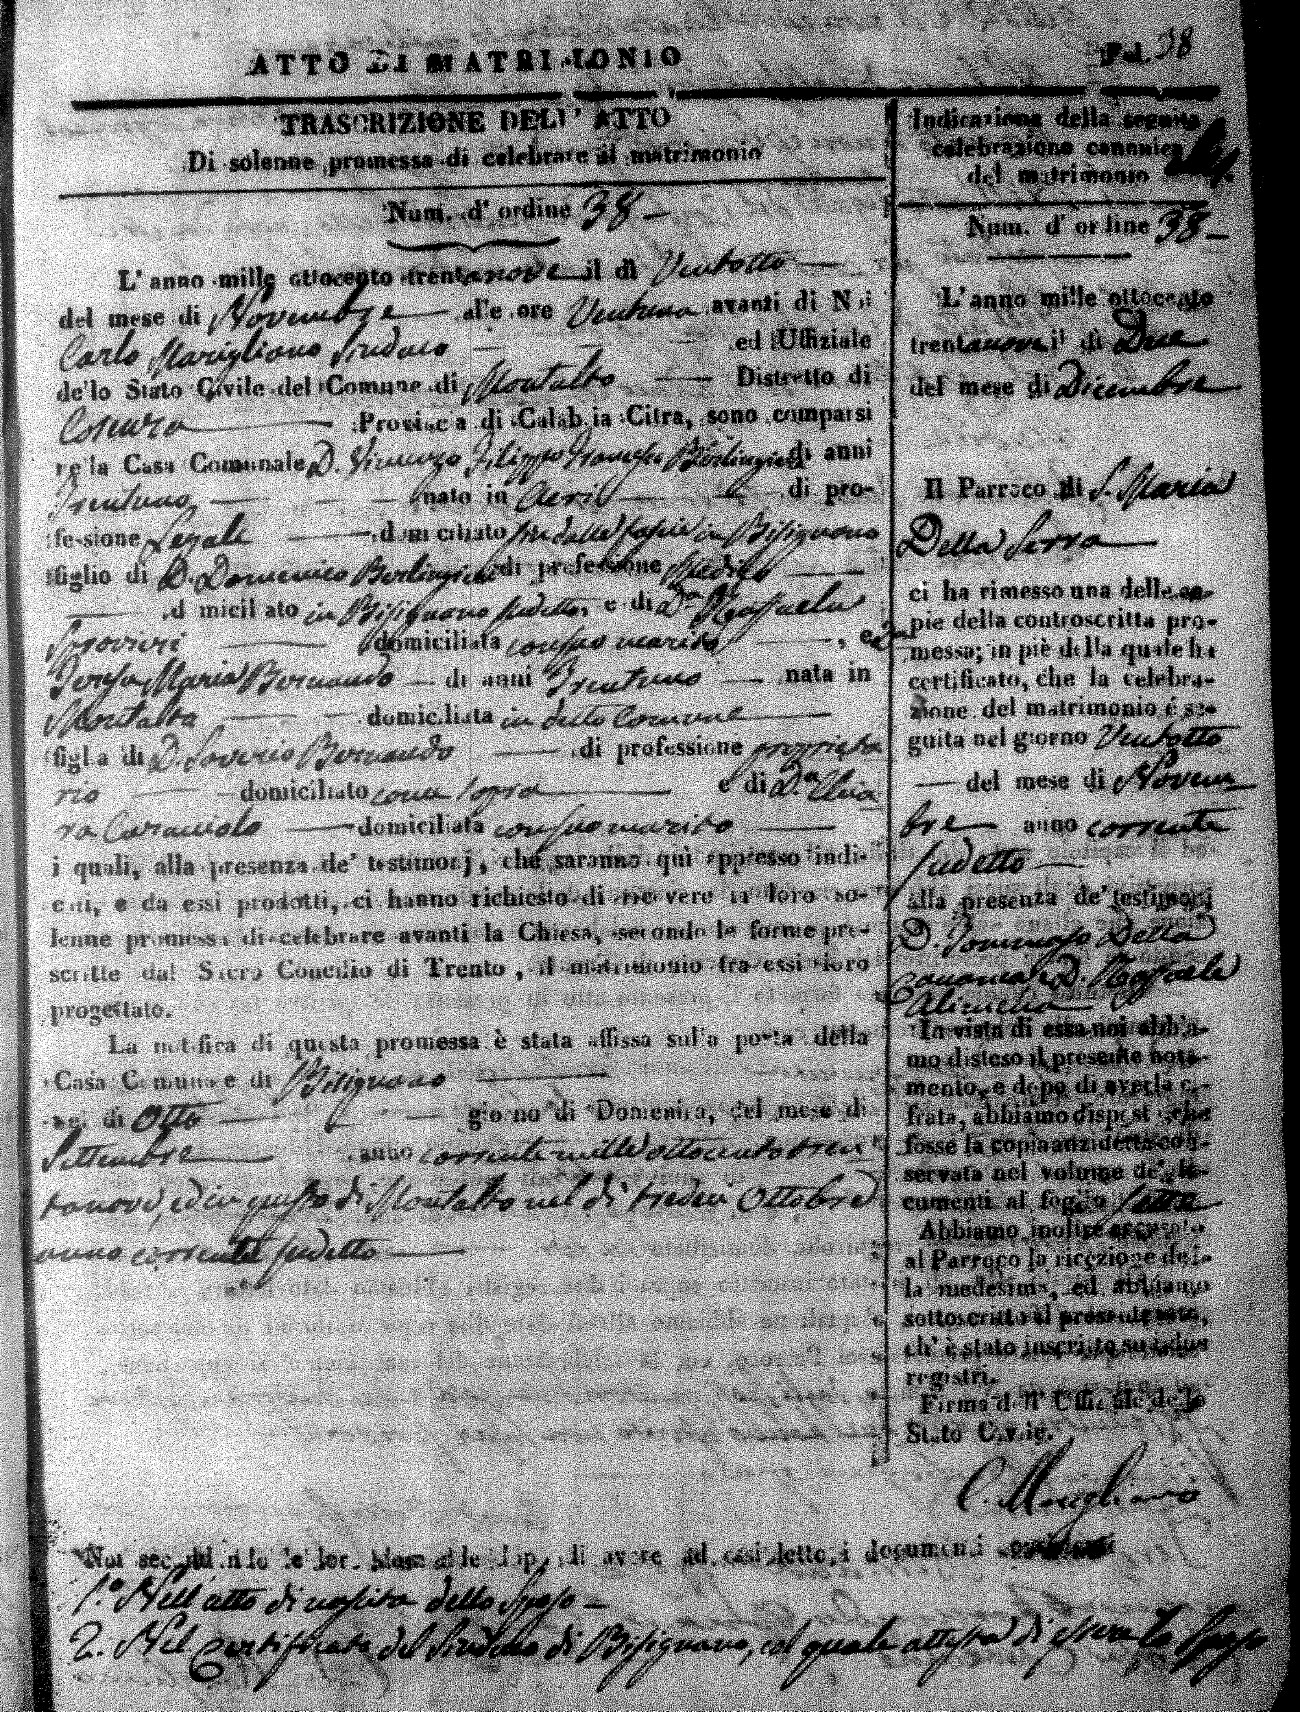 ATTO DI MATRIMONIO
Fol. 38
TRASCRIZIONE DELL' ATTO
Di solenne promessa di celebrare il matrimonio
Num. d' ordine 38
L' anno mille ottocento trentanove il dì Ventotto
del mese di Novembre alle ore Ventuna avanti di Noi
Carlo Marigliano Sindaco ed Uffiziale
dello Stato Civile del Comune di Montalto Distretto di
Cosenza Provincia di Calabria Citra, sono comparsi
nella Casa Comunale D. Vincenzo Filippo di anni
Trentuno nato in Acri di pro-
fessione Legale domiciliato in Bisignano
figlio di D. Domenico di professione Medico
domiciliato in Bisignano sudetto, e di D.a Raffaela
Sprovieri domiciliata con suo marito, e
Teresa Maria Bernaudo di anni Trentuno nata in
Montalto domiciliata in detto Comune
figlia di D. Saverio Bernaudo di professione proprieta
rio domiciliato come sopra e di D.a
Caracciolo domiciliata con suo marito
i quali, alla presenza de' testimonj, che saranno quì appresso indi-
cati, e da essi prodotti, ci hanno richiesto di ricevere la loro so-
lenne promessa di celebrare avanti la Chiesa, secondo le forme pre-
scritte dal Sacro Concilio di Trento, il matrimonio fra essi loro
progettato.
La notifica di questa promessa è stata affissa sulla porta della
Casa Comunale di Bisignano
nel dì Otto giorno di Domenica, del mese di
Settembre anno corrente mille ottocento tren
tanove, ed in questo di Montalto nel dì tredici Ottobre
anno corrente sudetto
Indicazione della seguita
celebrazione canonica
del matrimonio
Num. d' ordine 38
L' anno mille ottocento
trentanove il dì Due
del mese di Dicembre
Il Parroco di S. Maria
Della Serra
ci ha rimesso una delle co-
pie della controscritta pro-
messa; in piè della quale ha
certificato, che la celebra-
zione del matrimonio é se-
guita nel giorno Ventotto
del mese di Novem
bre anno corrente
sudetto
alla presenza de' testimonj
D. Tommaso Della
D. Raffaele
Alimena
In vista di essa noi abbia-
mo disteso il presente nota-
mento, e dopo di averla ci-
frata, abbiamo disposto che
fosse la copia anzidetta con-
servata nel volume de' do-
cumenti al foglio
Abbiamo inoltre accusato
al Parroco la ricezione del-
la medesima, ed abbiamo
sottoscritto il presente atto,
ch' è stato inscritto su i due
registri.
Firma dell' Uffiziale dello
Stato Civile.
C. Marigliano
1.° Nell'atto di nascita dello Sposo
2. Nel Certificato del Sindaco di Bisignano, col quale attesta di essere lo Sposo